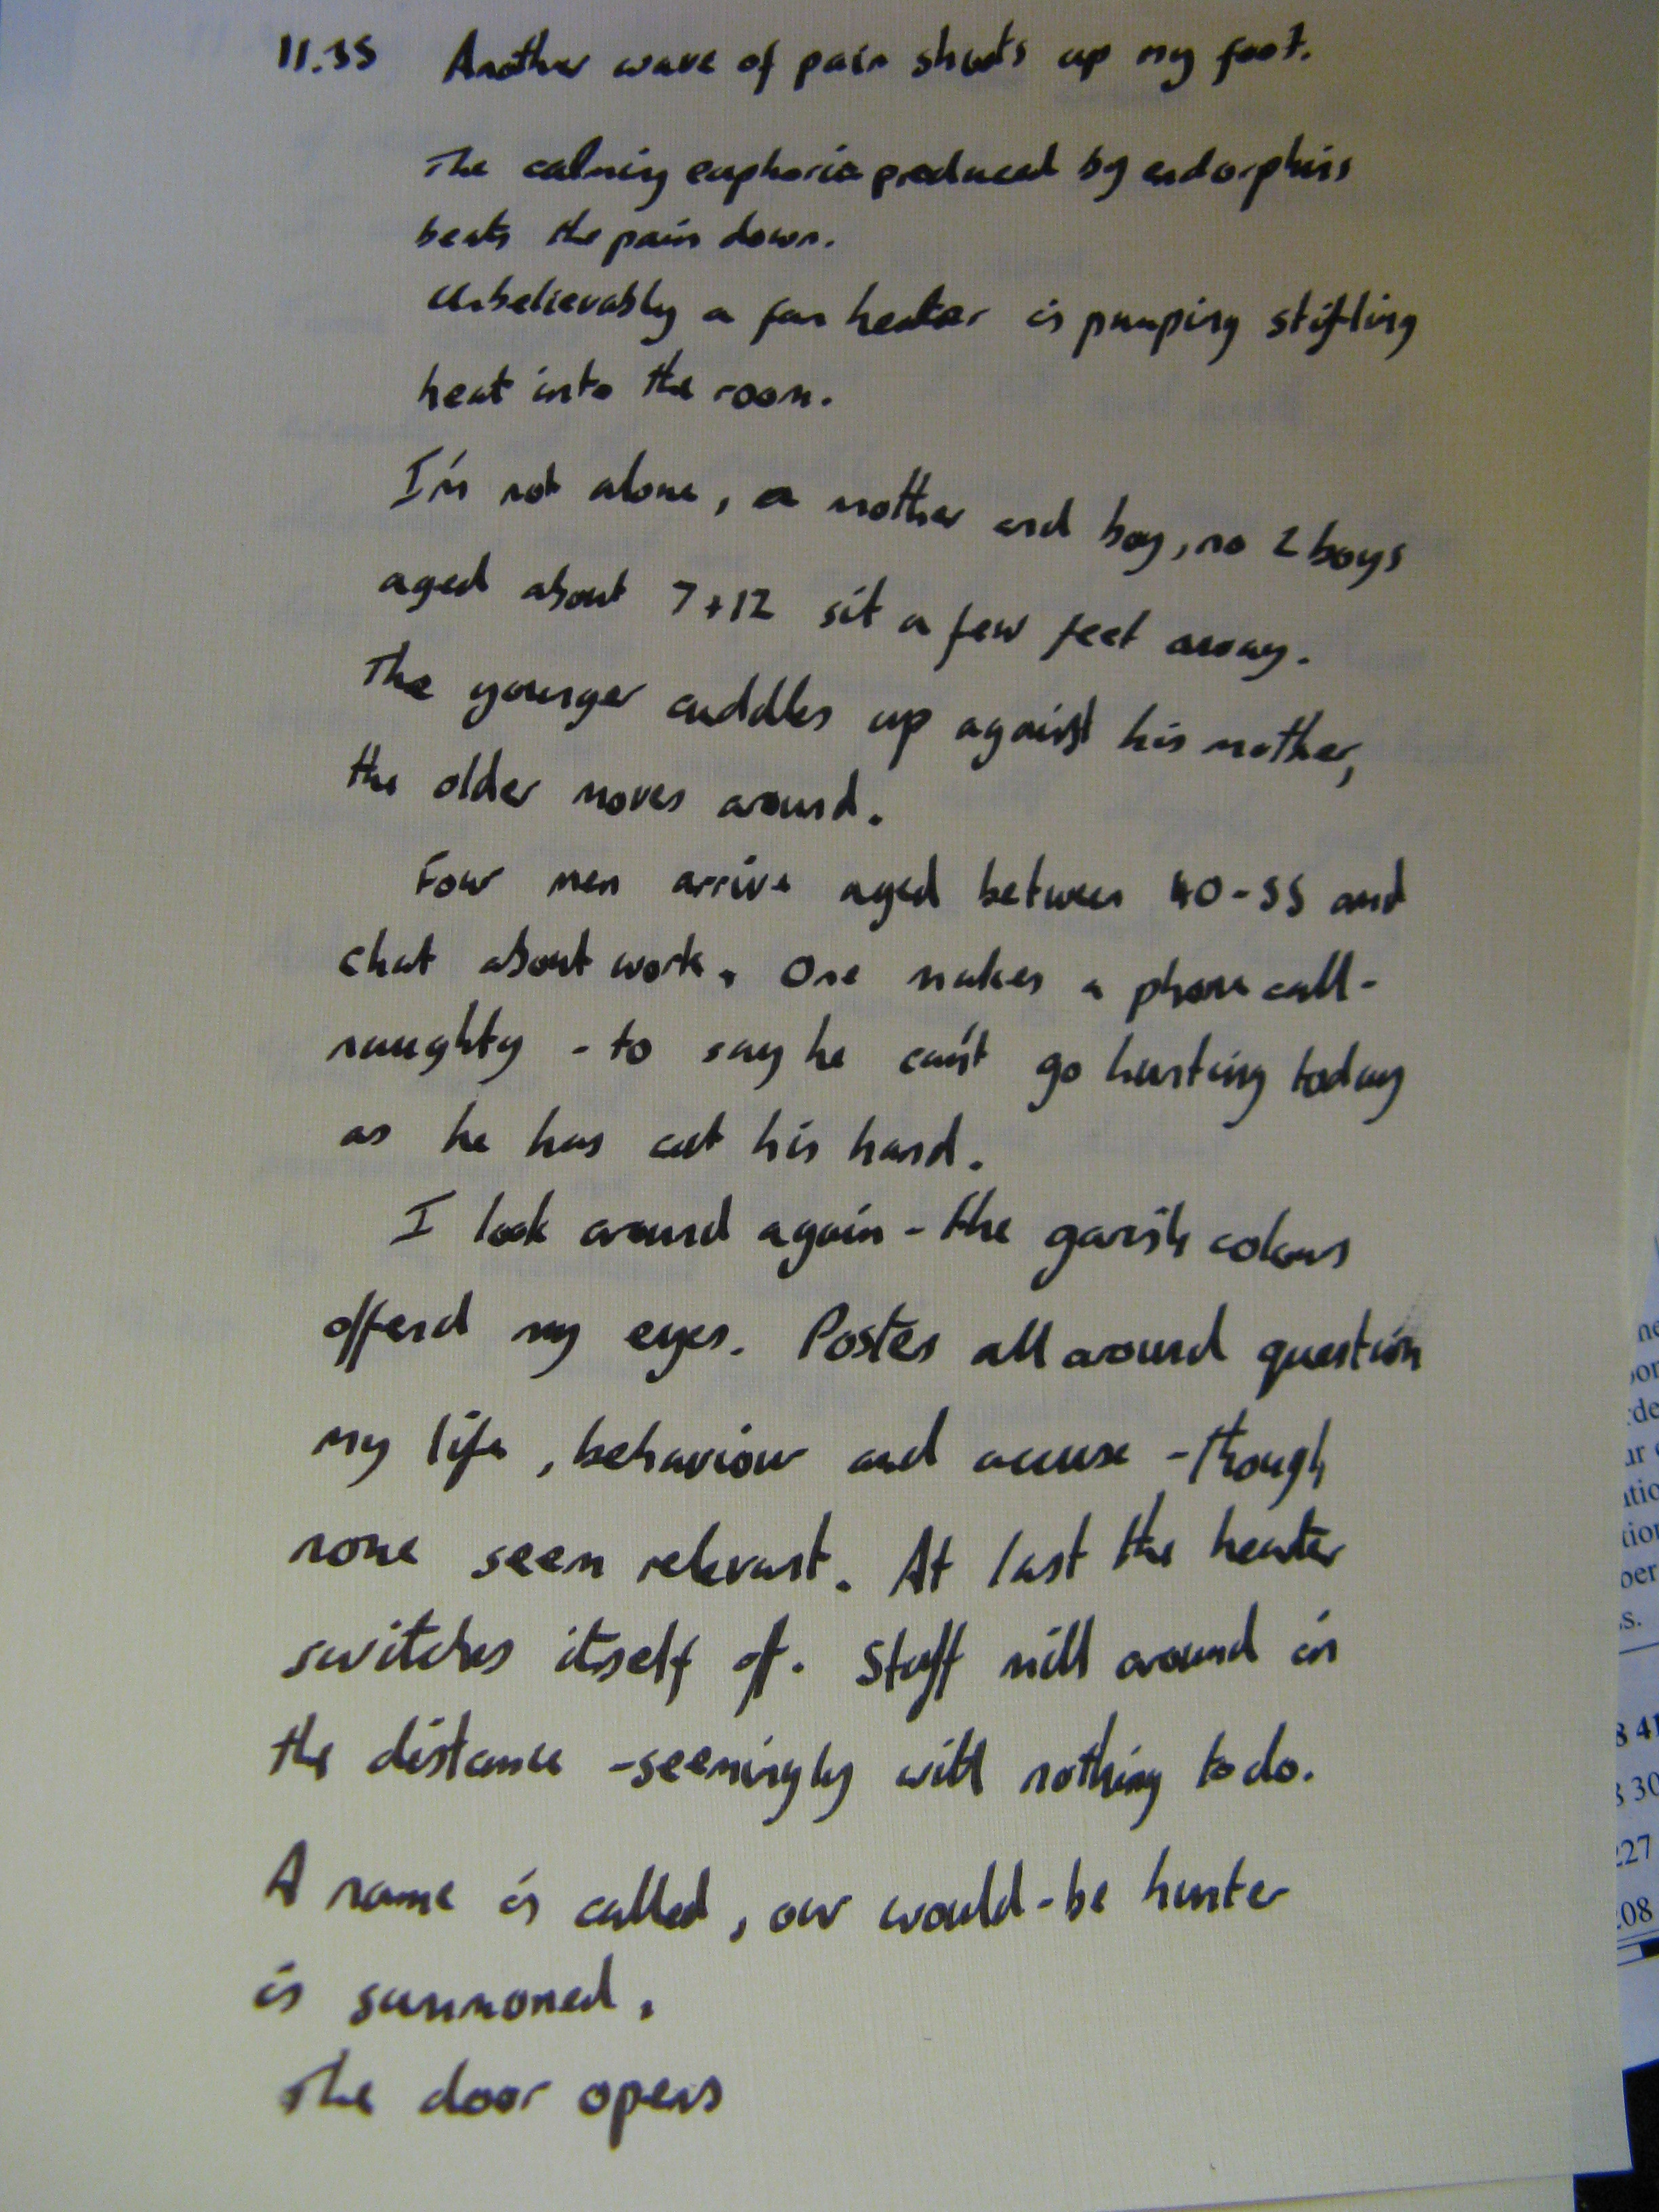 11.35 Another wave of pain shoots up my foot.
The calming euphoria produced by endorphins
beats the pain down.
Unbelievably a fan heater is pumping stifling
heat into the room.
I'm not alone, a mother and boy, no 2 boys
aged about 7+12 sit a few feet away.
The younger cuddles up against his mother,
the older moves around.
Four men arrive aged between 40-55 and
chat about work. One makes a phone call -
naughty - to say he can't go hunting today
as he has cut his hand.
I look around again - the garish colours
offend my eyes. Posters all around question
my life, behaviour and accuse - though
none seem relevant. At last the heater
switches itself off. Staff mill around in
the distance - seemingly with nothing to do.
A name is called, our would-be hunter
is summoned.
The door opens
8 41
8 30
227
208